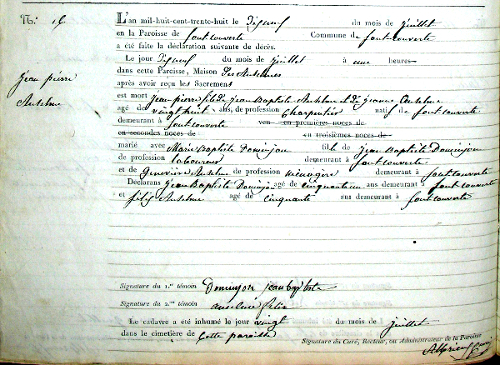 N.º 15
Jean pierre
Anselme
L'an mil-huit-cent-trente-huit le dixneuf du mois de juillet
en la Paroisse de fontcouverte Commune de fontcouverte
a été faite la déclaration suivante de décès.
Le jour dixneuf du mois de juillet à une heures
dans cette Paroisse, Maison des Anselmes
après avoir reçu les sacremens
est mort Jean pierre fils de Jean Baptiste Anselme et de jeanne Anselme
agé de vingt huit ans, de profession Charpentier natif de fontcouverte
demeurant à fontcouverte veu en premières noces de
en secondes noces de en troisièmes noces de
marié avec Marie Baptiste Dominjon fille de Jean Baptiste Dominjon
de profession laboureur demeurant à fontcouverte
et de Geneviève Anselme de profession ménagère demeurant à fontcouverte
Déclarans Jean Baptiste Dominjon agé de cinquante un ans demeurant à fontcouverte
et félix Anselme agé de cinquante ans demeurant à fontcouverte
Signature du 1.er témoin Dominjon jean baptiste
Signature du 2.e témoin anselme félix
Le cadavre a été inhumé le jour vingt du mois de juillet
dans le cimetière de cette paroisse
Signature du Curé, Recteur, ou Administrateur de la Paroisse